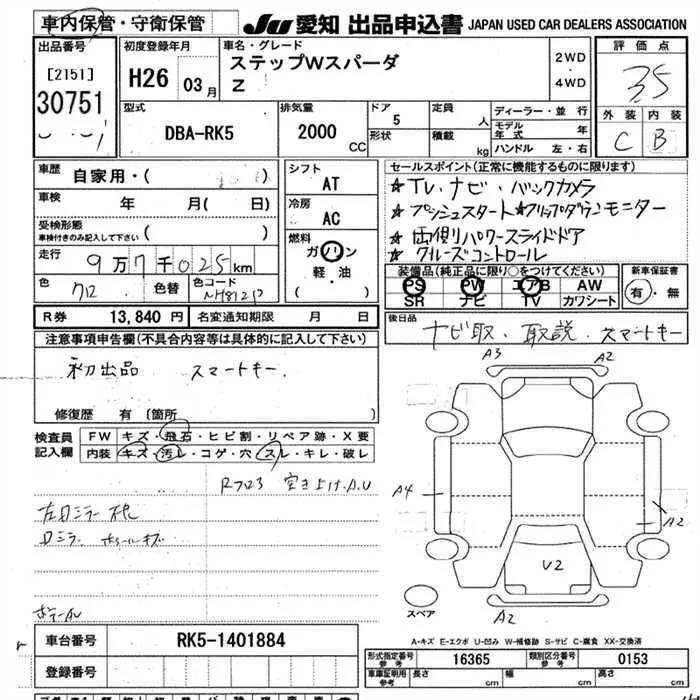 車内保管・守衛保管 JU 愛知 出品申込書 JAPAN USED CAR DEALERS ASSOCIATION
出品番号 初度登録年月 車名・グレード 評価点
[2151] H26 03月 ステップWスパーダ 2WD・4WD 3.5
30751 Z
外装 内装
型式 排気量 ドア 定員 人 ディーラー・並行
DBA-RK5 2000 CC 5 モデル年式 年
形状 積載 kg ハンドル 左・右
C B
車歴 自家用・( ) シフト AT セールスポイント(正常に機能するものに限ります)
車検 年 月( 日) 冷房 AC ★TV・ナビ・バックカメラ
受検形態 ★プッシュスタート★フリップダウンモニター
車検付きのみ記入して下さい 燃料 ★両側パワースライドドア
走行 9万7千025km ガソリン 軽・油 ( ) ★クルーズコントロール
装備品(純正品に限り○をつけてください) 新車保証書
色 クロ 色替 色コード NH812P PS PW エアB AW 有・無
SR ナビ TV カワシート
R券 13,840円 名変通知期限 月 日 後日品
ナビ取・取説・スマートキー
注意事項申告欄(不具合内容等は具体的に記入して下さい)
初出品 スマートキー
A3 A2
修復歴 有 (箇所 )
検査員記入欄 FW キズ・飛石・ヒビ割・リペア跡・X要
内装 キズ・汚レ・コゲ・穴・スレ・キレ・破レ
A4 A2
左ドミラー
ドミラー
U2
スペア A2
A-キズ E-エクボ U-凹み W-補修跡 S-サビ C-腐食 XX-交換済
車台番号 RK5-1401884
形式指定番号 参考 16365 類別区分番号 参考 0153
登録番号
車庫証明用 参考 長さ cm 幅 cm 高さ cm